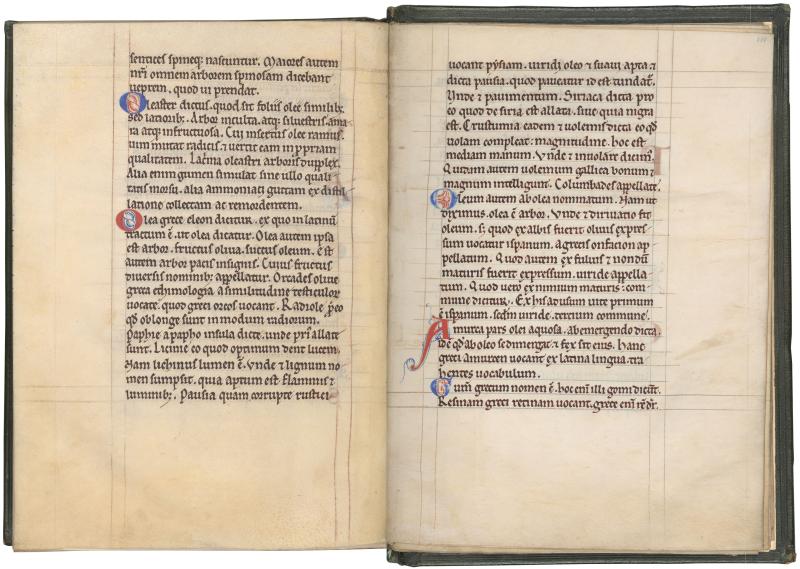 sentices spineq; nascuntur. Maiores autem
nr̃i omnem arborem spinosam dicebant
ueprem. quod ui prendat.
Oleaster dictus. quod sit foliis oliue similib;
sed latiorib;. Arbor inculta. atq; siluestris. ama
ra atq; infructuosa. Cui insertus oliue ramus.
uim mutat radicis. ⁊ uertit eam in ppriam
qualitatem. Lacrima oleastri arboris dupplex.
Alia enim gumen simulat sine ullo quali
tatis morsu. alia ammoniaci guttam ex distil
latione collectam ac remordentem.
Olea grece eleon dicitur. ex quo in latinũ
tractum ẽ. ut olea dicatur. Olea autem ipsa
est arbor. fructus oliua. succus oleum. ẽ st
autem arbor pacis insignis. Cuius fructus
diuersis nominib; appellatur. Orcades oliue
greca ethimologia a similitudine testiculor
uocate. quod greci orcos uocant. Radiole. p̃ eo
qđ oblonge sunt in modum radiorum.
Paphie a papho insula dicte. unde pri9 allate
sunt. Licinie eo quod optimum dent lucem.
Nam lichinus lumen ẽ. Vnde ⁊ lignum no
men sumpsit. quia aptum est flammis ⁊
luminib;. Pausia quam corrupte rustici
uocant pysiam. uiridi oleo ⁊ suaui apta ⁊
dicta pausia. quod pauiatur id est tundat᷑.
Vnde ⁊ pauimentum. Siriaca dicta pro
eo quod de siria est allata. siue quia nigra
est. Crustumia eadem ⁊ uolemis dicta eo qđ
uolam compleat magnitudine. hoc est
mediam manum. Vnde ⁊ inuolare dicim9.
Quidam autem uolemum gallica bonum ⁊
magnum intelligunt. Columbades appellate.
Oleum autem ab olea nominatum. Nam ut
diximus. olea ẽ arbor. Vnde ⁊ diriuatio fit
oleum. s; quod ex albis fuerit oliuis expres
sum uocatur ispanum. a grecis onfacion ap
pellatum. Quod autem ex fuluis ⁊ nondũ
maturis fuerit expressum. uiride appella
tum. Quod uero ex nimium maturis: com
mune dicitur. Ex his ad usum uite primum
ẽ ispanum. sedm̃ uiride. tercium commune.
Amurca pars olei aquosa. ab emergendo dicta.
id ẽ qđ ab oleo se dimergat ⁊ fex sit eius. Hanc
greci amurcen uocant ex latina lingua. tra
hentes uocabulum.
Gum̃ grecum nomen ẽ. hoc eni illi gomi dicũt.
Resinam greci retinam uocant. grece eni